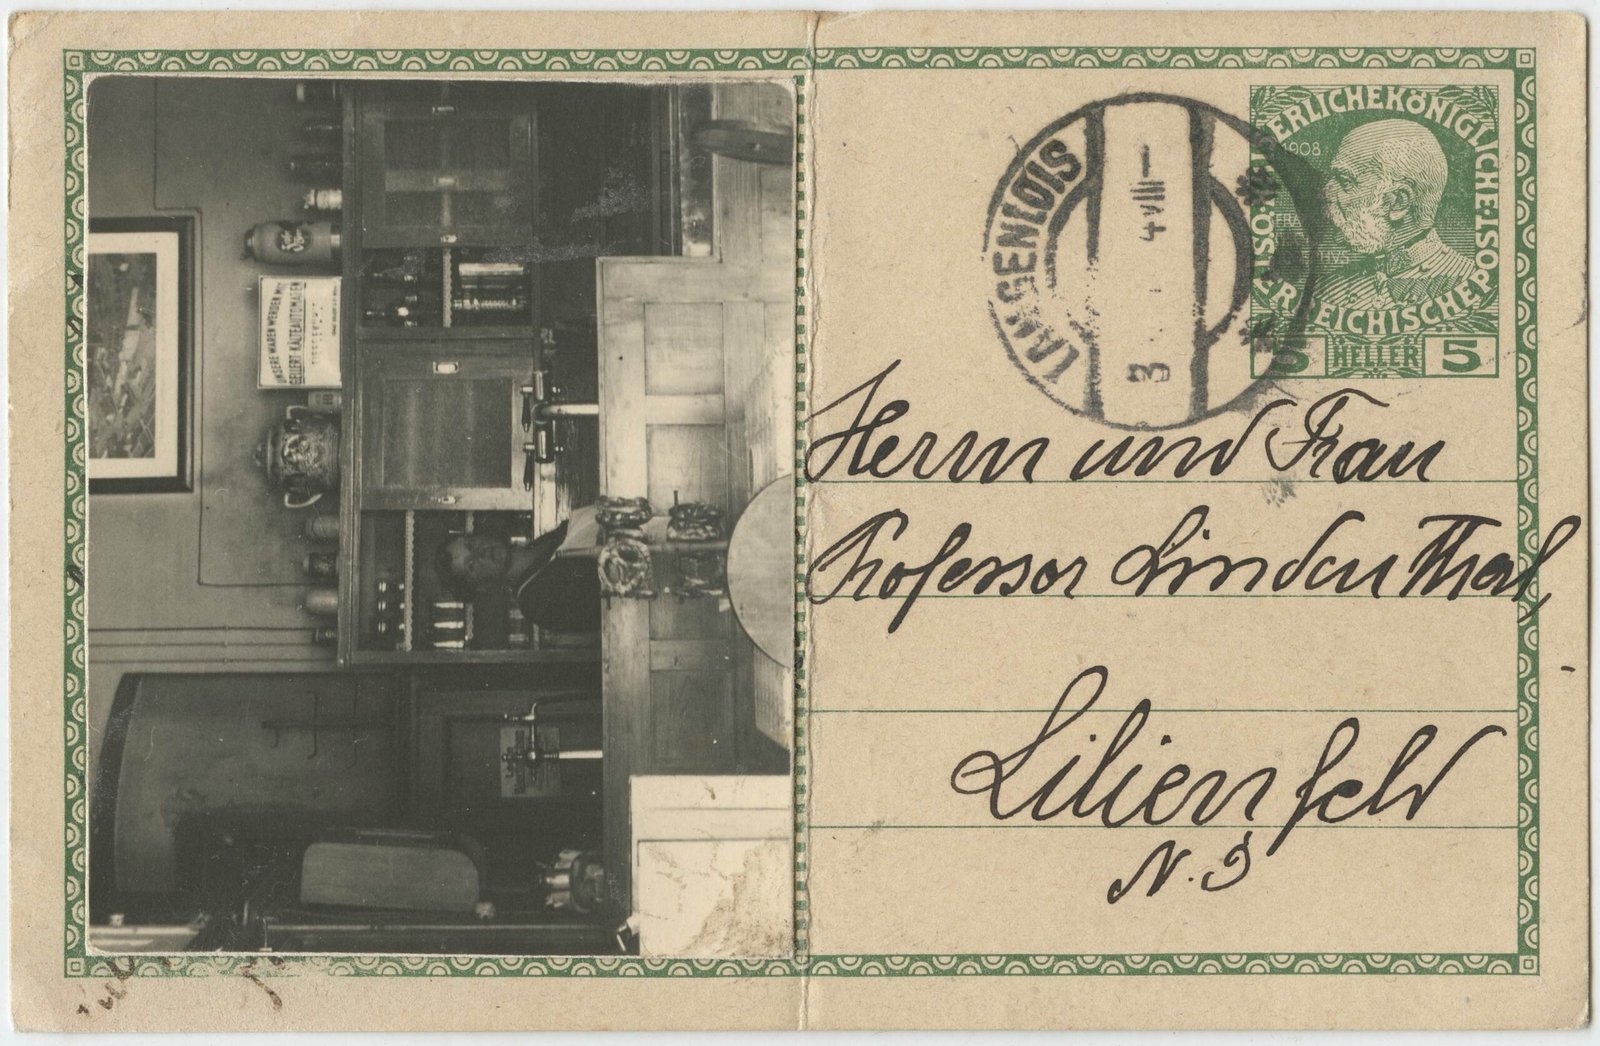 UNSERE WAREN WERDEN MIT
GEILERT KÄLTEAUTOMATEN
TIEFGEKÜHLT
LANGENLOIS
3 4 VIII
KAISERLICHE KÖNIGLICHE ÖSTERREICHISCHE POST
1908
5 HELLER 5
Herrn und Frau
Professor Lindenthal,
Lilienfeld
N. Ö